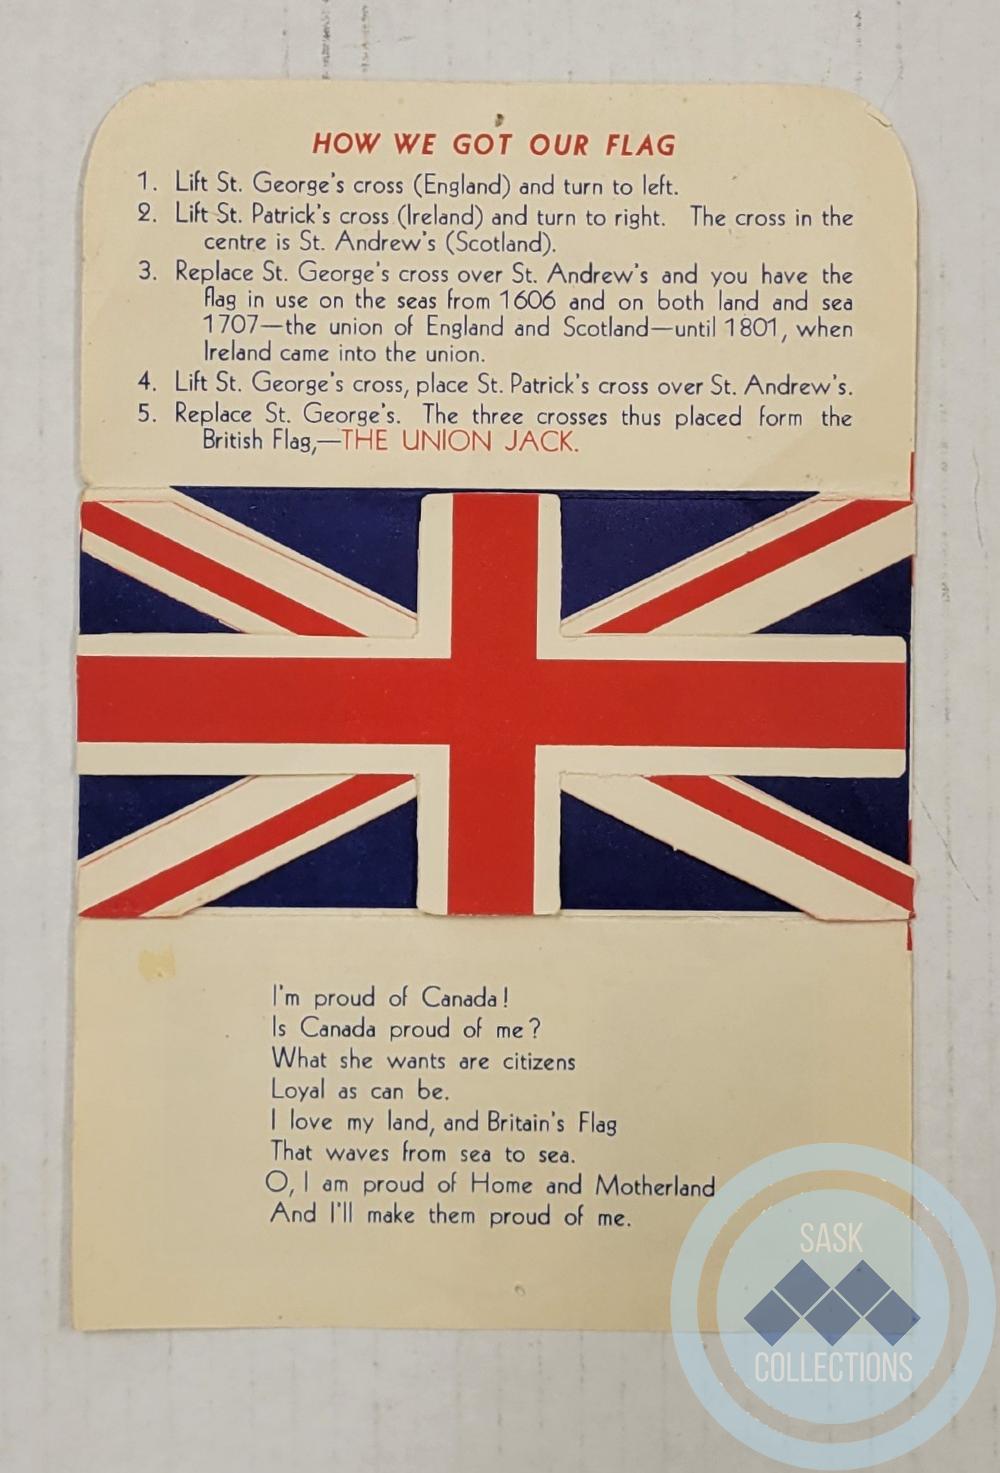 HOW WE GOT OUR FLAG
1. Lift St. George's cross (England) and turn to left.
2. Lift St. Patrick's cross (Ireland) and turn to right. The cross in the
centre is St. Andrew's (Scotland).
3. Replace St. George's cross over St. Andrew's and you have the
flag in use on the seas from 1606 and on both land and sea
1707—the union of England and Scotland—until 1801, when
Ireland came into the union.
4. Lift St. George's cross, place St. Patrick's cross over St. Andrew's.
5. Replace St. George's. The three crosses thus placed form the
British Flag,—THE UNION JACK.
I'm proud of Canada!
Is Canada proud of me?
What she wants are citizens
Loyal as can be.
I love my land, and Britain's Flag
That waves from sea to sea.
O, I am proud of Home and Motherland
And I'll make them proud of me.
SASK
COLLECTIONS